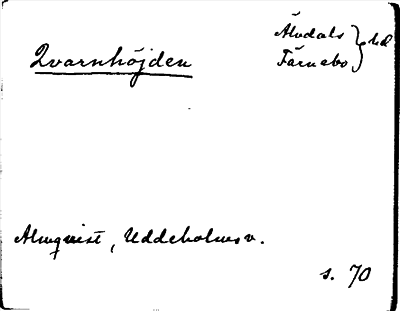 Älvdals
Qvarnhöjden } hd
Färnebo
Almqvist, Uddeholmsv.
s. 70